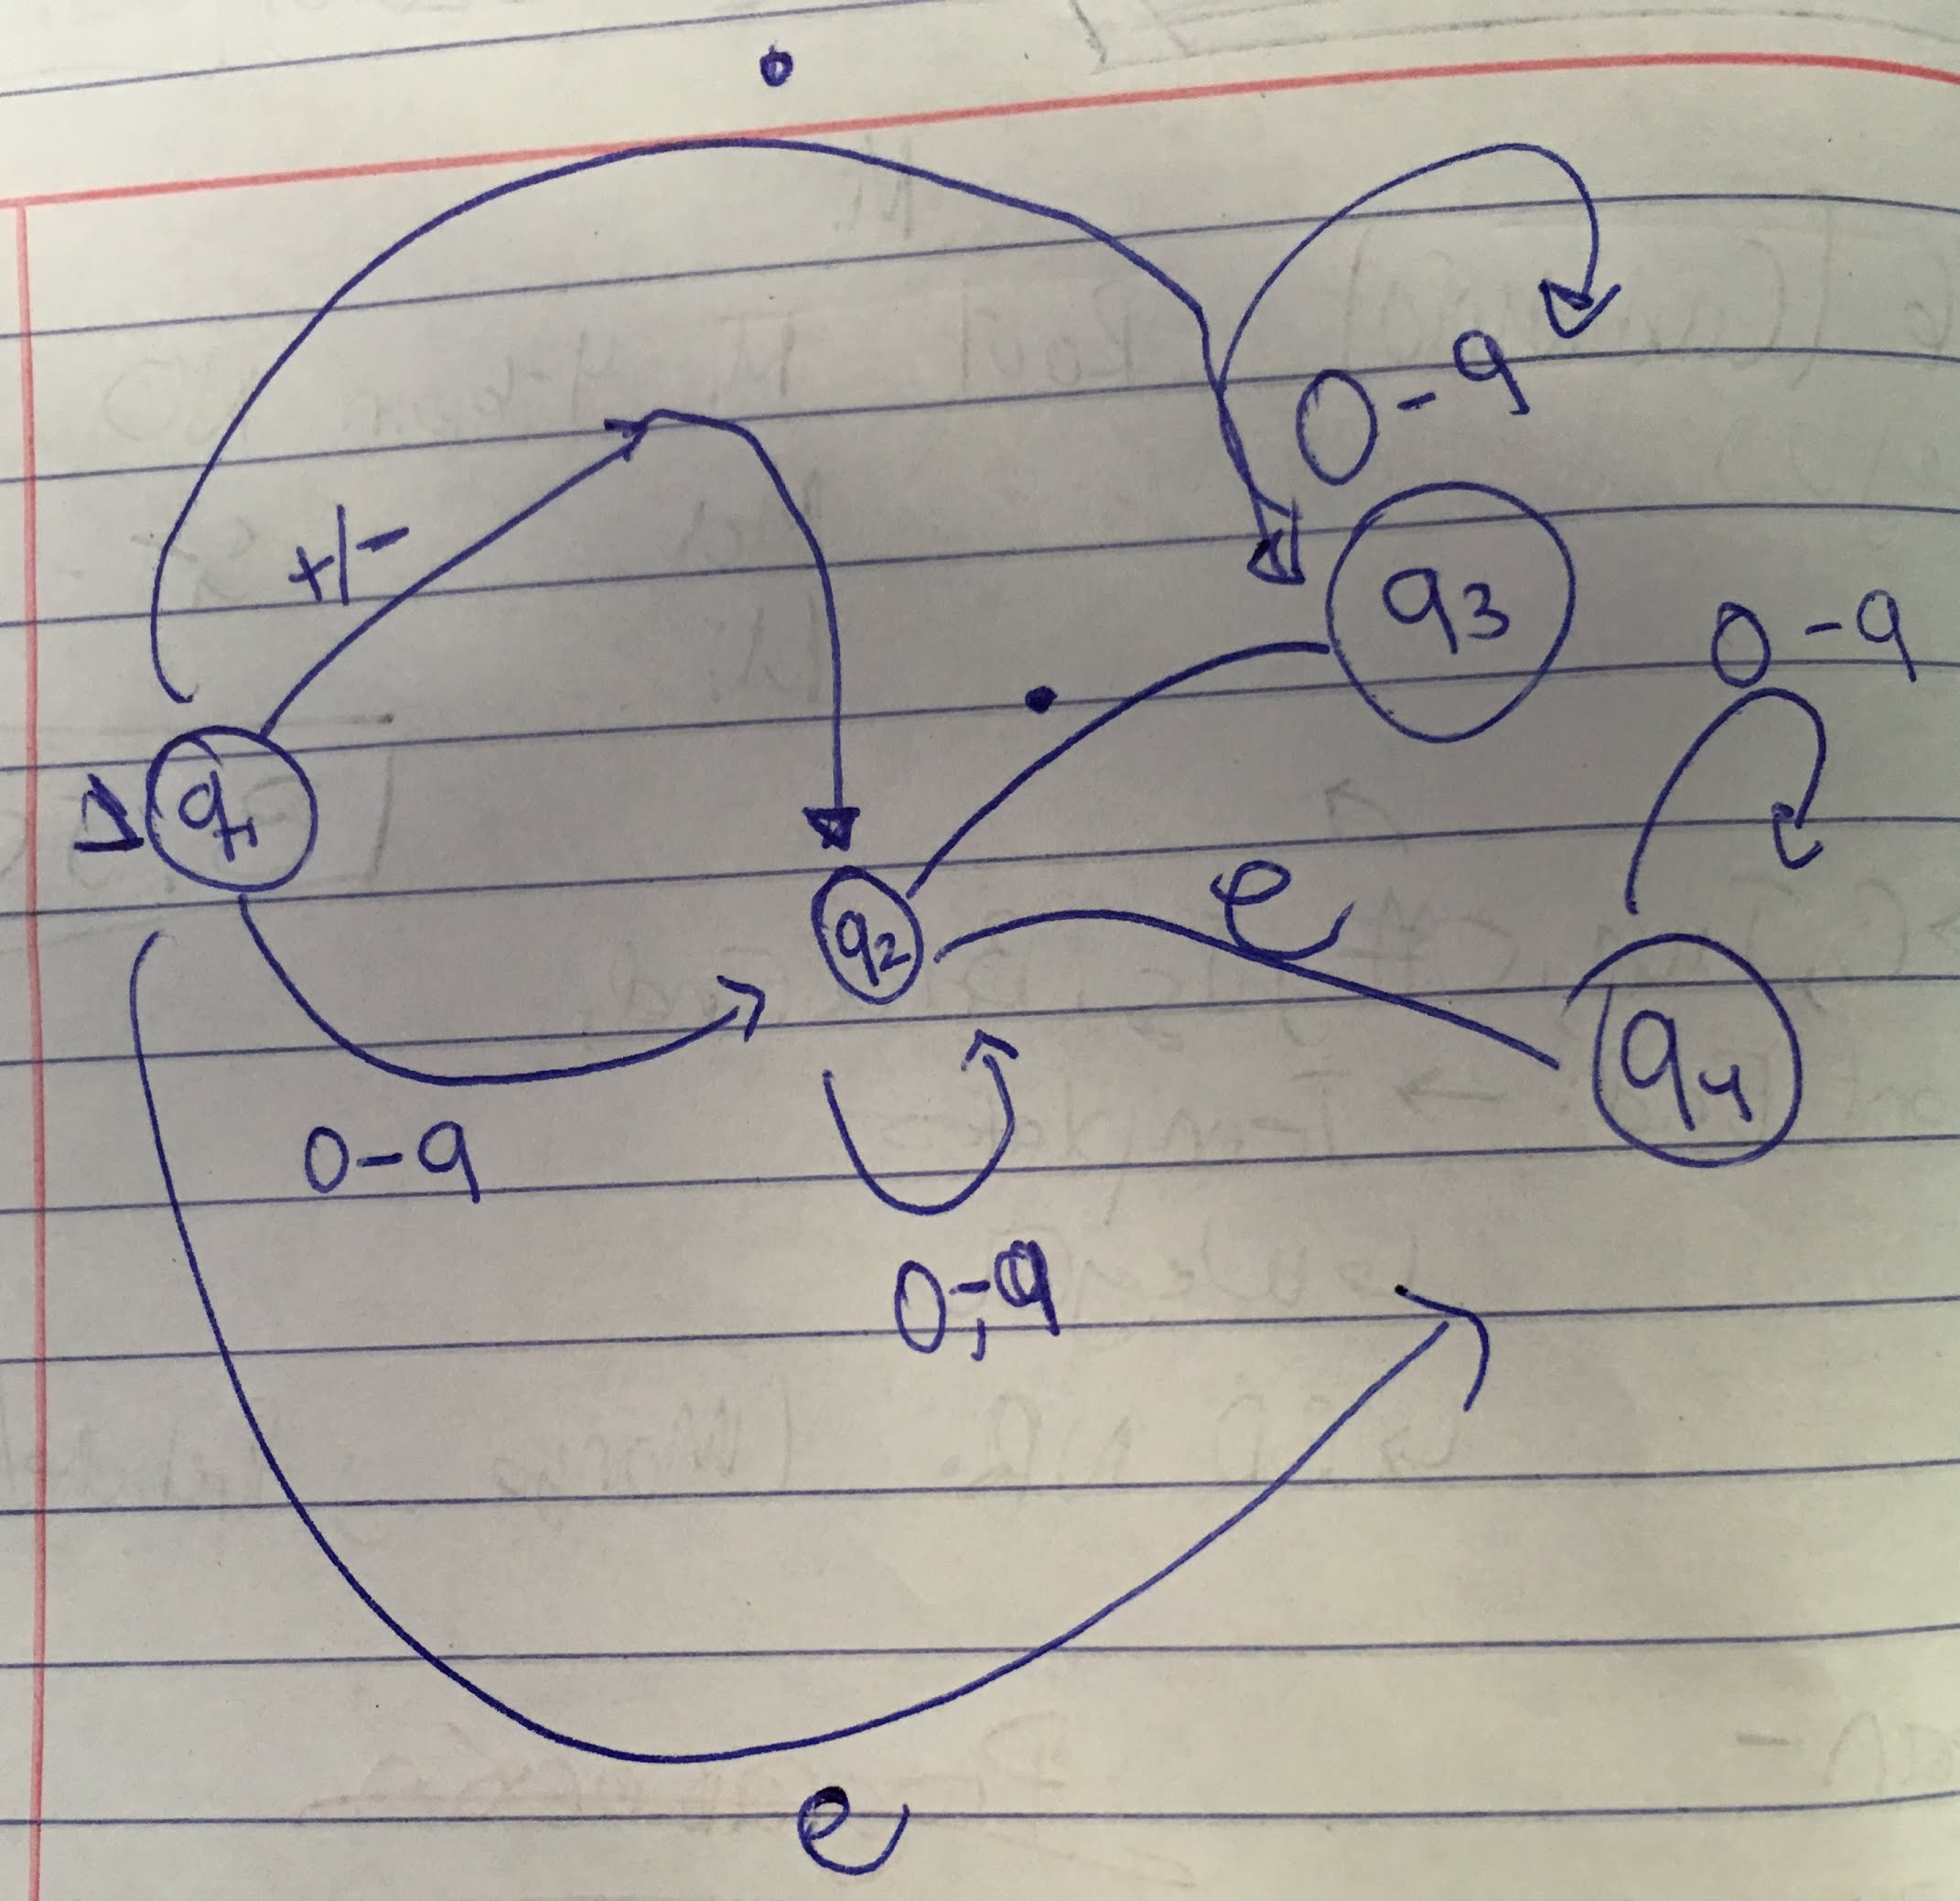 .
0-9
+/-
q3
0-9
.
q1
e
q2
q4
0-9
0,-9
e